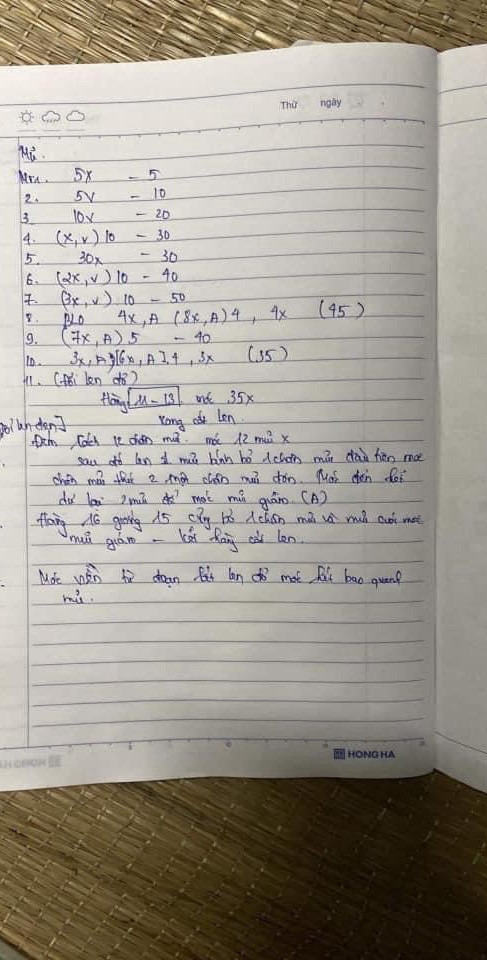 Thứ ngày
Mũ.
Mr1. 5x - 5
2. 5v - 10
3 10v - 20
4. (x,v)10 - 30
5. 30x - 30
6. (2x,v)10 - 40
7. (3x,v)10 - 50
8. 4x,A (8x,A)4, 4x (45)
9. (7x,A)5 - 40
10. 3x,A,[6x,A].4, 3x (35)
11. (Đổi len đỏ)
Hàng [11-13] móc 35x
xong cắt len.
Đổi len đen]
Đếm tách 12 chân mũi. móc 12 mũi x
sau đó lên 1 mũi bính bỏ 1 chân mũi đầu tiên móc
chân mũi thứ 2 một chân mũi đơn. Móc đến
dư lại 2 mũi để móc mũi giảm. (A)
Hàng 16 giống 15 cũng bỏ 1 chân mũi và mũi cuối móc
mũi giảm - kết hàng cắt len.
Móc viền từ đoạn len đỏ móc bao quanh
mũ.
HONG HA